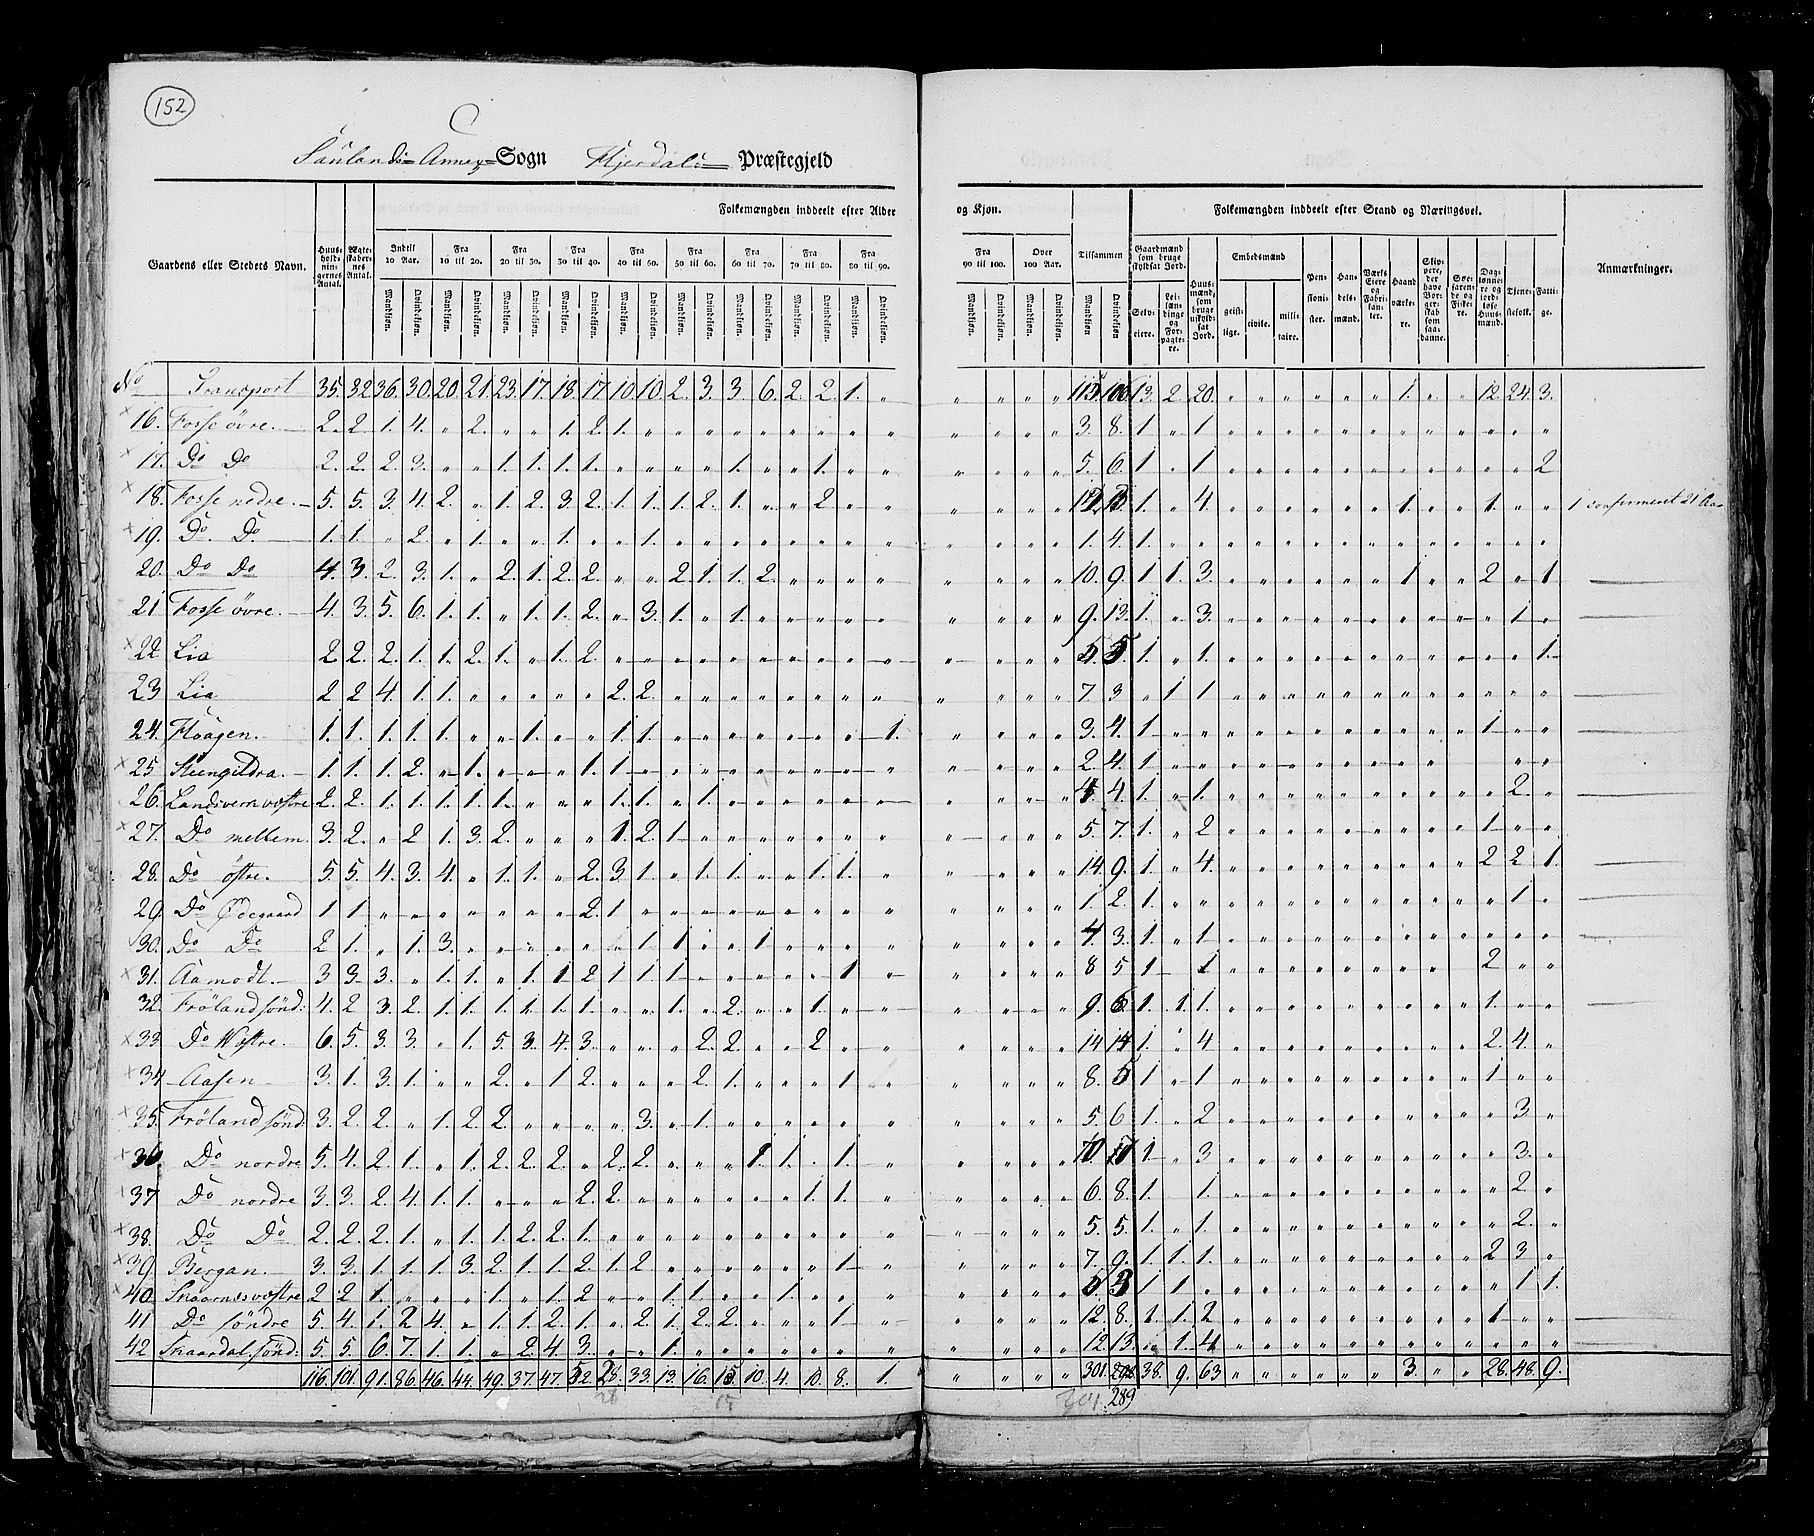 152
Saulands Annex Sogn Hjerdals Præstegjeld
Folkemængden inddeelt efter Alder og Kjøn. Tilsammen Folkemængden inddeelt efter Stand og Næringsvei.
Gaardens eller Stedets Navn. Huusholdningernes Antal. Ægteskabernes Antal. Indtil 10 Aar. Fra 10 til 20. Fra 20 til 30. Fra 30 til 40. Fra 40 til 50. Fra 50 til 60. Fra 60 til 70. Fra 70 til 80. Fra 80 til 90. Fra 90 til 100. Over 100 Aar.
Mandkjøn. Qvindekjøn.
Gaardmænd som bruge skyldsat Jord. Selveiere. Leilændinge og Forpagtere. Huusmænd, som bruge uskyldsat Jord. Embedsmænd geistlige. civile. militaire. Pensionister. Handelsmænd. Værks Eiere og Fabrikanter. Haandværkere. Skippere, der have Borgerskab som saadanne. Søefarende og Fiskere. Daglønnere og jordløse Huusmænd. Tjenestefolk. Fattige. Anmærkninger.
No Transport 35. 32 36. 30. 20. 21. 23. 17. 18. 17. 10. 10. 2. 3. 3. 6. 2. 2. 1. „ „ „ „ „ 13. 2. 20. 1. 12. 24. 3.
16. Fosse övre. 2. 2. 1. 4. „ 2. „ „ 1. 2. 1. 3. 8. 1 „ 1
17. Do Do 2. 2. 2. 3. „ „ 1. 1. 1. 1. 1. 1. 5. 6. 1 „ 1 2
18. Fosse nedre. 5. 5. 3. 4. 2. „ 1. 2. 3. 2. 1. 1. 1. 2. 1. „ „ 2. 1. „ 4. 1 1. 1 confirmeret 21 Aar
19. Do. Do. 1. 1. „ 2. „ 1. „ „ 1. „ „ 1. 1. 4. 1.
20. Do Do 4. 3. 2. 3. 1. „ 2. 1. 2. 2. „ „ 2. 1. 1. 2. 10. 9. 1 1. 3. 1 2 „ 1.
21. Fosse övre. 4. 3. 5. 6. 1. 1. „ 1. 1. 2. „ 3. 1. „ 1. 9. 13. 1. „ 3. 1
22 Lia 2 2. 2. 1. 1. 2. 1. „ 1. 2. 5 5. 1. „ 1. 1.
23 Lia 2 2 4. 1. 1. 2. 2. 7. 3 „ 1 1
24. Floagen. 1. 1. 1. 1. 1. „ „ 1. „ „ 1. 1. 1. 3. 4. 1 1.
25 Steengildra. 1. 1. 1. 2. „ 1. 1. 1 2. 4. 1
26. Landsverk vestre 2. 2. 1. 1. 1. 1. 1. 1. 1. „ 1. 4. 4. 1. „ 1. 2.
27. Do mellem. 3. 2. „ 2 1. 3. 2. 1. 2. 1 5. 7. 1. „ 2 1
28. Do östre. 5. 5. 4. 3. 4. „ 1. 1. „ 2. 3. 1. „ 1. 1. „ „ 1. 1. 14. 9. 1. „ 4. 2 2 1.
29. Do Ödegaard 1 1 2. 1 1. 2. 1. 1
30. Do Do 2 1. „ 1. 3. 1 1 „ „ 1 4. 3. 1. „ 1
31. Aamodt. 3 3. 3. „ 1. 1. „ 1. 1 2 1 1. 1. 1 8 5 1 1 2
32. Fröland sönd: 4. 2 3. 2. 1. 1 1. 1. 1. 1. „ „ 1. „ 2. „ „ 1. 9. 6 1. 1 1. 1.
33 Do Vestre. 6. 5. 3. 3. „ 1. 5. 3. 4. 3. 2. 2. „ „ 2 14 14 1. 4 2. 4.
34. Aasen 3. 1. 3. 1. „ „ 2. „ 1 2. 2. 1. 1 8. 5 1 „ 1 1
35. Fröland sönd: 3. 2. 2. „ 1. 2. 2. 3. „ 1. 5. 6 1. „ 2 3.
36. Do nordre 5. 4. 2. 1. „ 1. 2. 2. 2. „ 2. 2. 1. 1. „ 1. 1 „ 3 3.
37 Do nordre 3. 3. 2. 4. 1. 1. 2. 2. 1. 1. 6. 8. 1. 1. 2.
38. Do Do 2. 2. 2. 1. „ 1. 1. 2. 2. 1. 5. 5. 1. „ 1. 2.
39. Bergan. 3. 3. 1. 1. 1. 3. 2. 1. 1. 2. 1. 2 1 7. 9. 1. 1. 1. 2 3
40. Snaarnes vestre 2 2 1. 1. „ 1. 2 „ „ 1. 1. „ „ 1. 3 1 1. 1. 1.
41 Do söndre 5. 4. 1. 2 4. „ 1. 1. 2. 1. „ 2. 1. 2. 2. 1 12. 8. 1 1. 2 1
42 Snaardal. sönd: 5. 5. 6. 7. 1. 1. „ 2. 4. 3. 1. 12. 13. „ 1. 4
116. 101. 91. 86. 46. 44. 49. 37. 47. 52. 28. 33. 13. 16. 15 10. 4. 10. 8. 1. 301. 38. 9. 63 3. 28. 48. 9.
289